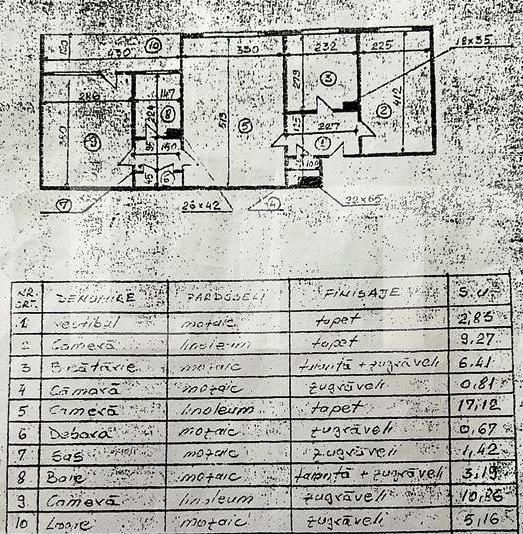 430 10 330 232 225 18x35
286 147 273 3 2 412
350 224 8 513 5 125 227 1
9 150 100
45 6
7 26x42 4 22x65
NR. CRT. DENUMIRE PARDOSELI FINISAJE S.U.
1 vestibul mozaic tapet 2,85
2 Cameră linoleum tapet 9,27
3 Bucătărie mozaic faianță + zugrăveli 6,41
4 Cămară mozaic zugrăveli 0,81
5 Cameră linoleum tapet 17,12
6 Debara mozaic zugrăveli 0,67
7 Sas mozaic zugrăveli 1,42
8 Baie mozaic faianță + zugrăveli 3,19
9 Cameră linoleum zugrăveli 10,86
10 Logie mozaic zugrăveli 5,16